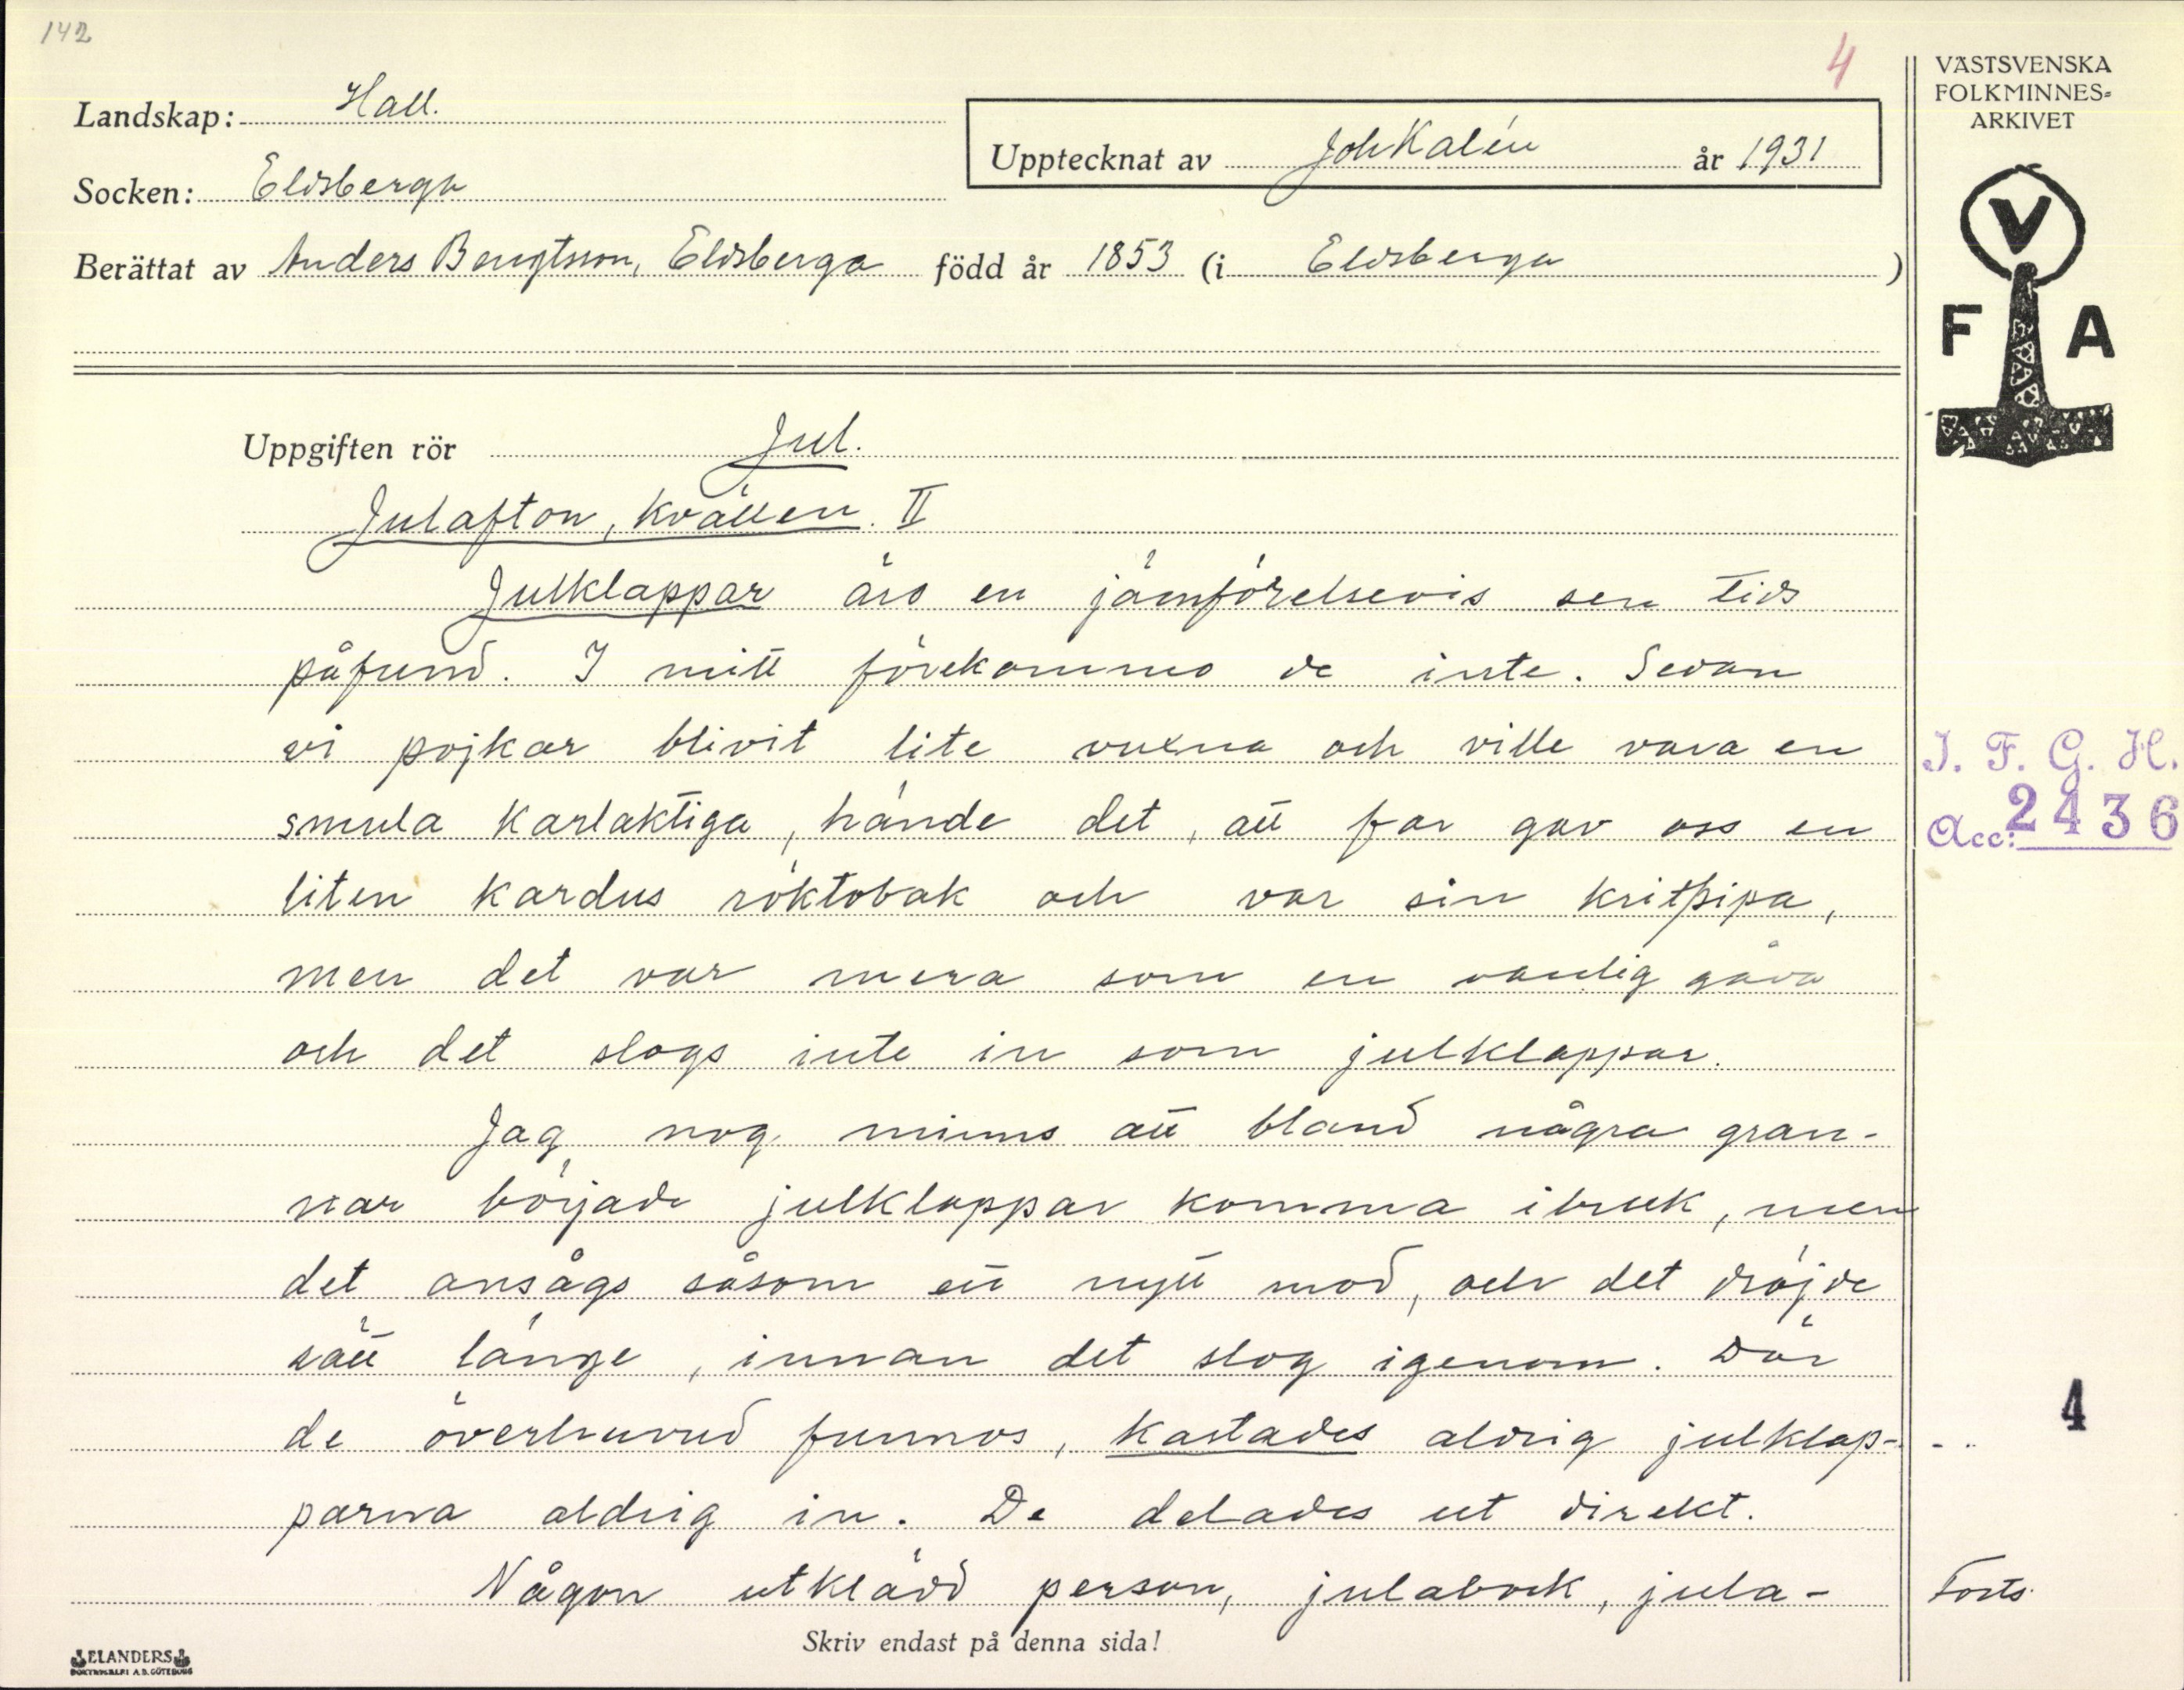 142
4
VÄSTSVENSKA
FOLKMINNES=
ARKIVET
Landskap: Hall.
Upptecknat av Joh Kalén år 1931
Socken: Eldsberga
Berättat av Anders Bengtsson, Eldsberga född år 1853 (i Eldsberga )
V
F A
Uppgiften rör Jul.
Julafton, kvällen. II
Julklappar äro en jämförelsevis sen tids
påfund. I mitt förekommo de inte. Sedan
vi pojkar blivit lite vuxna och ville vara en
smula karlaktiga, hände det, att far gav oss en
liten kardus röktobak och var sin kritpipa,
men det var mera som en vanlig gåva
och det slogs inte in som julklappar.
Jag nog minns att bland några gran-
nar började julklappar komma ibruk, men
det ansågs såsom ett nytt mod, och det dröjde
rätt länge, innan det slog igenom. Där
de överhuvud funnos, kastades aldrig julklap-
parna aldrig in. De delades ut direkt.
Någon utklädd person, julabock, jula-
I. F. G. H.
Acc: 2436
4
Forts.
Skriv endast på denna sida!
ELANDERS
BOKTRYCKERI A.B. GÖTEBORG